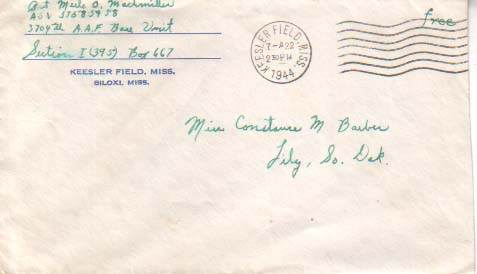 Merle O. Mackmiller
ASN 37685958
3704th A.A.F. Base Unit
Section I (395) Box 667
KEESLER FIELD, MISS.
BILOXI, MISS.
KEESLER FIELD, MISS.
22
230PM
1944
free
Miss Constance M Barber
Lily, So. Dak.